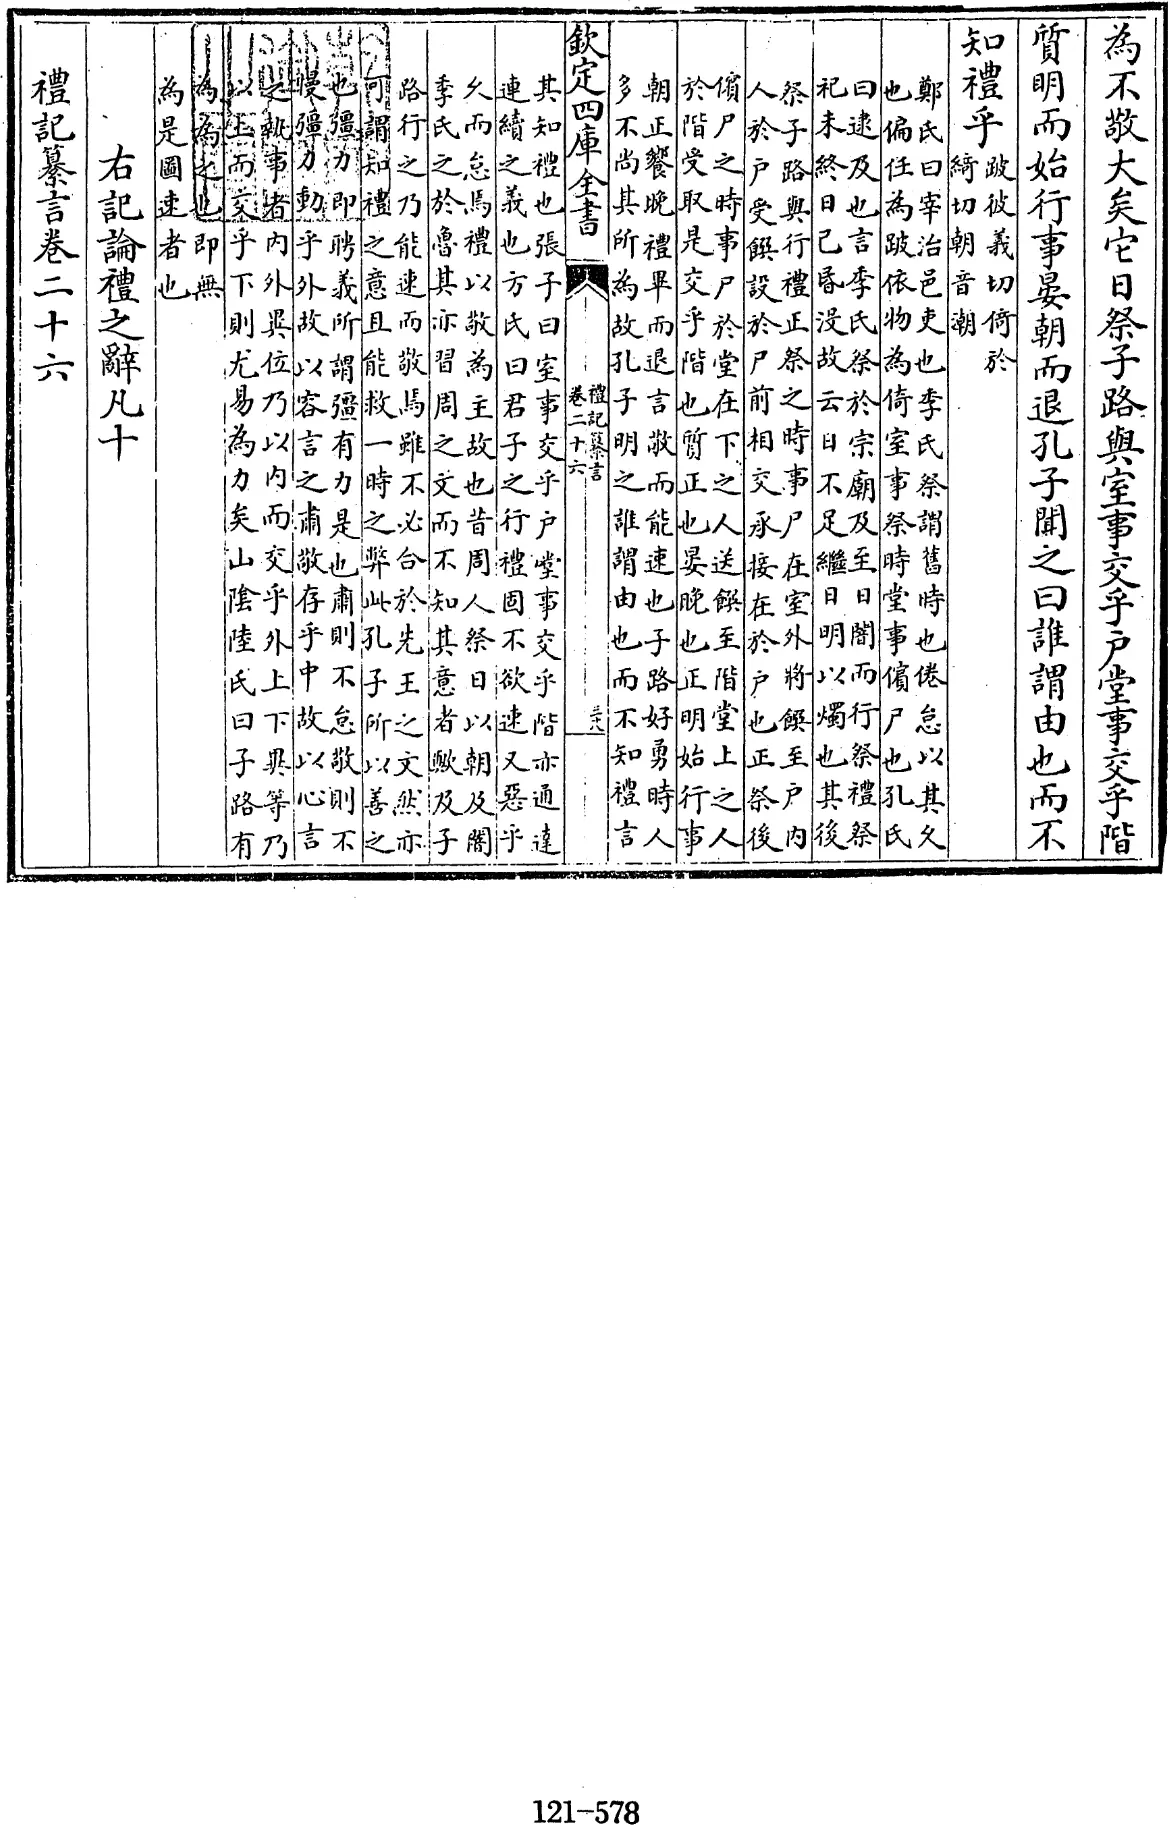 為不敬大矣它日祭子路與室事交乎户堂事交乎階
質明而始行事晏朝而退孔子聞之曰誰謂由也而不
知禮乎
跛彼義切倚於
綺切朝音潮
鄭氏曰宰治邑吏也季氏祭謂舊時也倦怠以其久
也偏任為跛依物為倚室事祭時堂事儐尸也孔氏
曰逮及也言季氏祭於宗廟及至日闇而行祭禮祭
祀未終日已昏没故云日不足繼日明以燭也其後
祭子路與行禮正祭之時事尸在室外將饌至户内
人於户受饌設於尸前相交承接在於户也正祭後
儐尸之時事尸於堂在下之人送饌至階堂上之人
於階受取是交乎階也質正也晏晚也正明始行事
朝正饗晚禮畢而退言敬而能速也子路好勇時人
多不尚其所為故孔子明之誰謂由也而不知禮言
欽定四庫全書
禮記纂言
卷二十六
三六
其知禮也張子曰室事交乎户堂事交乎階亦通達
連續之義也方氏曰君子之行禮固不欲速又惡乎
久而怠焉禮以敬為主故也昔周人祭日以朝及闇
季氏之於魯其亦習周之文而不知其意者歟及子
路行之乃能速而敬焉雖不必合於先王之文然亦
可謂知禮之意且能救一時之弊此孔子所以善之
也彊力即聘義所謂彊有力是也肅則不怠敬則不
慢彊力動乎外故以容言之肅敬存乎中故以心言
之執事者内外異位乃以内而交乎外上下異等乃
以上而交乎下則尤易為力矣山陰陸氏曰子路有
為為之也即無
為是圖速者也
右記論禮之辭凡十
禮記纂言卷二十六
121-578